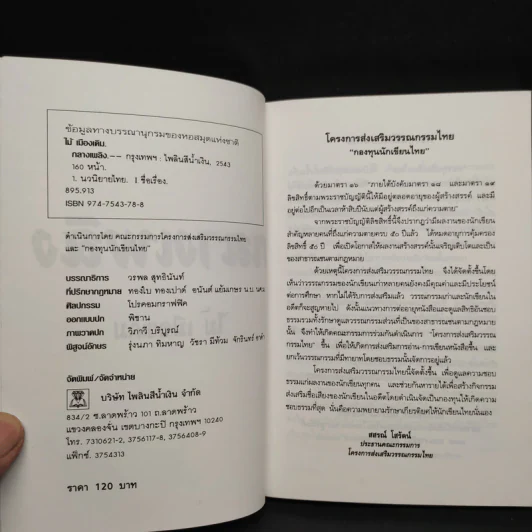 ข้อมูลทางบรรณานุกรมของหอสมุดแห่งชาติ
ไม้ เมืองเดิม.
กลางเพลิง.-- กรุงเทพฯ : โพลินสีน้ำเงิน, 2543
160 หน้า.
1. นวนิยายไทย. I. ชื่อเรื่อง.
895.913
ISBN 974-7543-78-8
ดำเนินการโดย คณะกรรมการโครงการส่งเสริมวรรณกรรมไทย
และ "กองทุนนักเขียนไทย"
บรรณาธิการ วรพล สุทธินันท์
ที่ปรึกษากฎหมาย ทองใบ ทองเปาด์ อนันต์ แย้มเกษร
ศิลปกรรม โปรคอมกราฟฟิค
ออกแบบปก พิธาน
ภาพวาดปก วิภาวี บริบูรณ์
พิสูจน์อักษร รุ่งนภา ทิมหาญ วัชรา มีท้วม
จัดพิมพ์/จัดจำหน่าย
บริษัท โพลินสีน้ำเงิน จำกัด
834/2 ซ.ลาดพร้าว 101 ถ.ลาดพร้าว
แขวงคลองจั่น เขตบางกะปิ กรุงเทพฯ 10240
โทร. 7310621-2, 3756117-8, 3756408-9
แฟ็กซ์. 3754313
ราคา 120 บาท
โครงการส่งเสริมวรรณกรรมไทย
"กองทุนนักเขียนไทย"
ด้วยมาตรา ๑๖ "ภายใต้บังคับมาตรา ๑๘ และมาตรา ๑๙
ลิขสิทธิ์ตามพระราชบัญญัตินี้ให้มีอยู่ตลอดอายุของผู้สร้างสรรค์ และมี
อยู่ต่อไปอีกเป็นเวลาห้าสิบปีนับแต่ผู้สร้างสรรค์ถึงแก่ความตาย"
จากพระราชบัญญัติลิขสิทธิ์นี้จึงปรากฏว่ามีผลงานของนักเขียน
สำคัญหลายคนที่ถึงแก่ความตายครบ ๕๐ ปีแล้ว ได้หมดอายุการคุ้มครอง
ลิขสิทธิ์ ๕๐ ปี เพื่อเปิดโอกาสให้ผลงานสร้างสรรค์นั้นเจริญเติบโตและเป็น
ของสาธารณชนตามกฎหมาย
ด้วยเหตุนี้โครงการส่งเสริมวรรณกรรมไทย จึงได้จัดตั้งขึ้นโดย
เห็นว่าวรรณกรรมของนักเขียนเก่าหลายคนยังคงมีคุณค่าและมีประโยชน์
ต่อการศึกษา หากไม่ได้รับการส่งเสริมแล้ว วรรณกรรมเก่าและนักเขียนใน
อดีตก็จะสูญหายไป ดังนั้นแนวทางการต่ออายุหนังสือและดูแลสิทธิอันชอบ
ธรรมรวมทั้งรักษาดูแลวรรณกรรมส่วนที่เป็นของสาธารณชนตามกฎหมาย
นั้น จึงทำให้เกิดคณะกรรมการร่วมกันดำเนินการ "โครงการส่งเสริมวรรณกรรม
ไทย" ขึ้น เพื่อให้เกิดการส่งเสริมการอ่าน-การเขียนหนังสือขึ้น และ
ยกเว้นวรรณกรรมที่มีทายาทโดยชอบธรรมนั้นจัดการอยู่แล้ว
โครงการส่งเสริมวรรณกรรมไทยนี้จัดตั้งขึ้น เพื่อดูแลความชอบ
ธรรมแก่ผลงานของนักเขียนทุกคน และช่วยกันหารายได้เพื่อสร้างกิจกรรม
ส่งเสริมชื่อเสียงของนักเขียนในอดีตโดยดำเนินจัดเป็นกองทุนให้เกิดความ
ชอบธรรมที่สุด นั่นคือความพยายามรักษาเกียรติยศให้นักเขียนไทยนั่นเอง
สสรณ์ โสรัตน์
ประธานคณะกรรมการ
โครงการส่งเสริมวรรณกรรมไทย